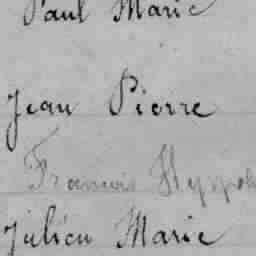 Paul Marie
Jean Pierre
Francois Hyppol
Julien Marie